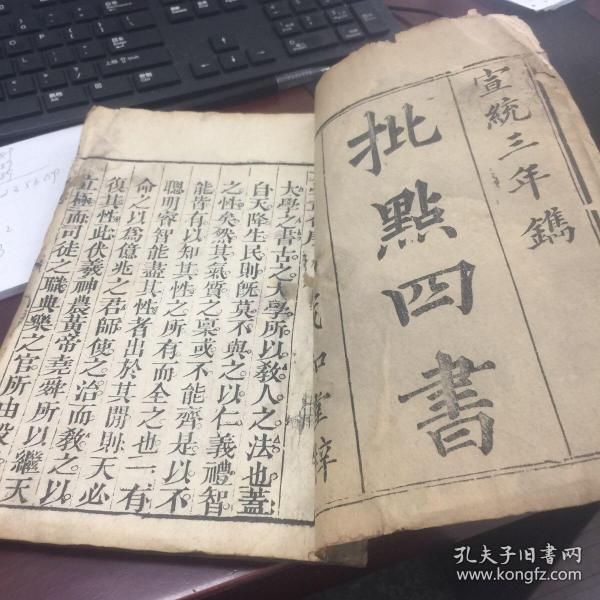 宣統三年鐫
批點四書
和堂梓
大學之書古之大學所以教人之法也蓋
自天降生民則旣莫不與之以仁義禮智
之性矣然其氣質之稟或不能齊是以不
能皆有以知其性之所有而全之也一有
聰明睿智能盡其性者出於其閒則天必
命之以爲億兆之君師使之治而教之以
復其性此伏羲神農黃帝堯舜所以繼天
立極而司徒之職典樂之官所由設
孔夫子旧书网
www.kongfz.com